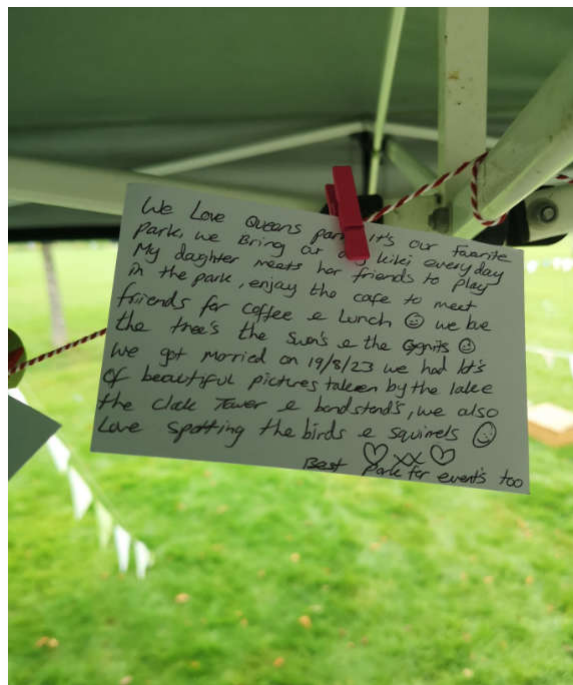 We Love Queens park it's our favorite
park, we Bring our kiki everyday
My daughter meets her friends to play
in the park, enjoy the cafe to meet
friends for coffee & Lunch ☺ we love
the tree's the Swan's & the ☺
we got married on 19/8/23 we had lot's
of beautiful pictures taken by the lake
the Clock Tower & bandstand's, we also
Love spotting the birds & squirrels ☺
♡ XX ♡
Best Park for event's too